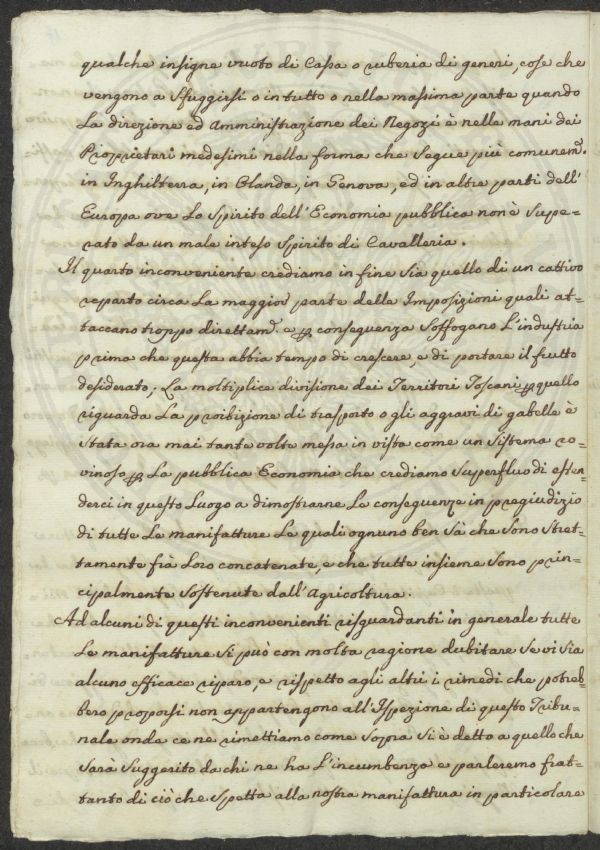 qualche insigne vuoto di Cassa o ruberia di generi, cose che
vengono a sfuggirsi o in tutto o nella massima parte quando
La direzione ed Amministrazione dei Negozi è nella mani dei
Proprietari medesimi nella forma che segue più comunem.e
in Inghilterra, in Olanda, in Genova, ed in altre parti dell'
Europa ove Lo Spirito dell'Economia pubblica non è supe=
rato da un male inteso Spirito di Cavalleria.
Il quarto inconveniente crediamo in fine sia quello di un cattivo
reparto circa La maggior parte delle Imposizioni quali at=
taccano troppo direttam.e e p conseguenza Soffogano L'industria
prima che questa abbia tempo di crescere, e di portare il frutto
desiderato; La moltiplice divisione dei Territori Toscani p quello
riguarda La proibizione di trasporto o gli aggravi di gabelle è
Stata ora mai tante volte messa in vista come un Sistema ro=
vinoso p La pubblica Economia che crediamo Superfluo di esten=
derci in questo Luogo a dimostrarne Le conseguenze in pregiudizio
di tutte Le manifatture Le quali ognuno ben Sà che Sono Stret=
tamente frà Loro concatenate, e che tutte insieme Sono prin=
cipalmente Sostenute dall'Agricoltura.
Ad alcuni di questi inconvenienti risguardanti in generale tutte
Le manifatture Si può con molta ragione dubitare Se vi Sia
alcuno efficace riparo, e rispetto agli altri i rimedi che potreb=
bero proporsi non appartengono all'Ispezione di questo Tribu=
nale onde ce ne rimettiamo come Sopra Si è detto a quello che
Sarà Suggerito da chi ne ha L'incumbenza e parleremo frat=
tanto di ciò che Spetta alla nostra manifattura in particolare